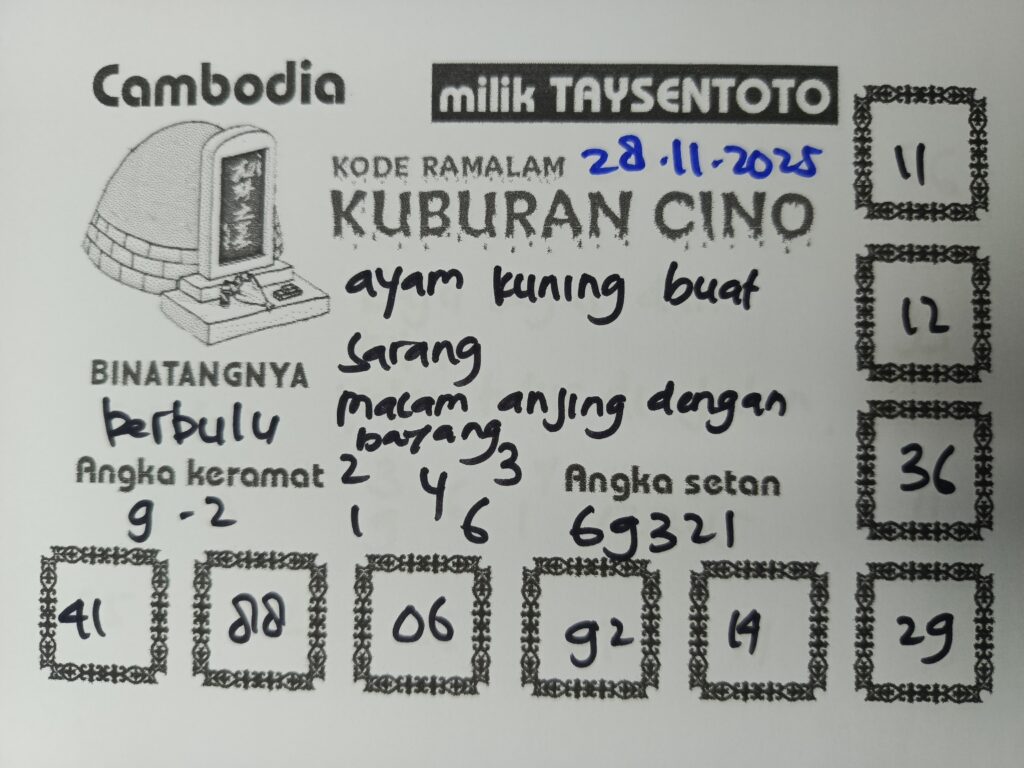 Cambodia
milik TAYSENTOTO
KODE RAMALAM 28.11.2025
KUBURAN CINO
ayam kuning buat
sarang
macam anjing dengan
bayang
BINATANGNYA
berbulu
Angka keramat
9-2
2 4 3
1 6
Angka setan
69321
11
12
36
41 88 06 92 14 29